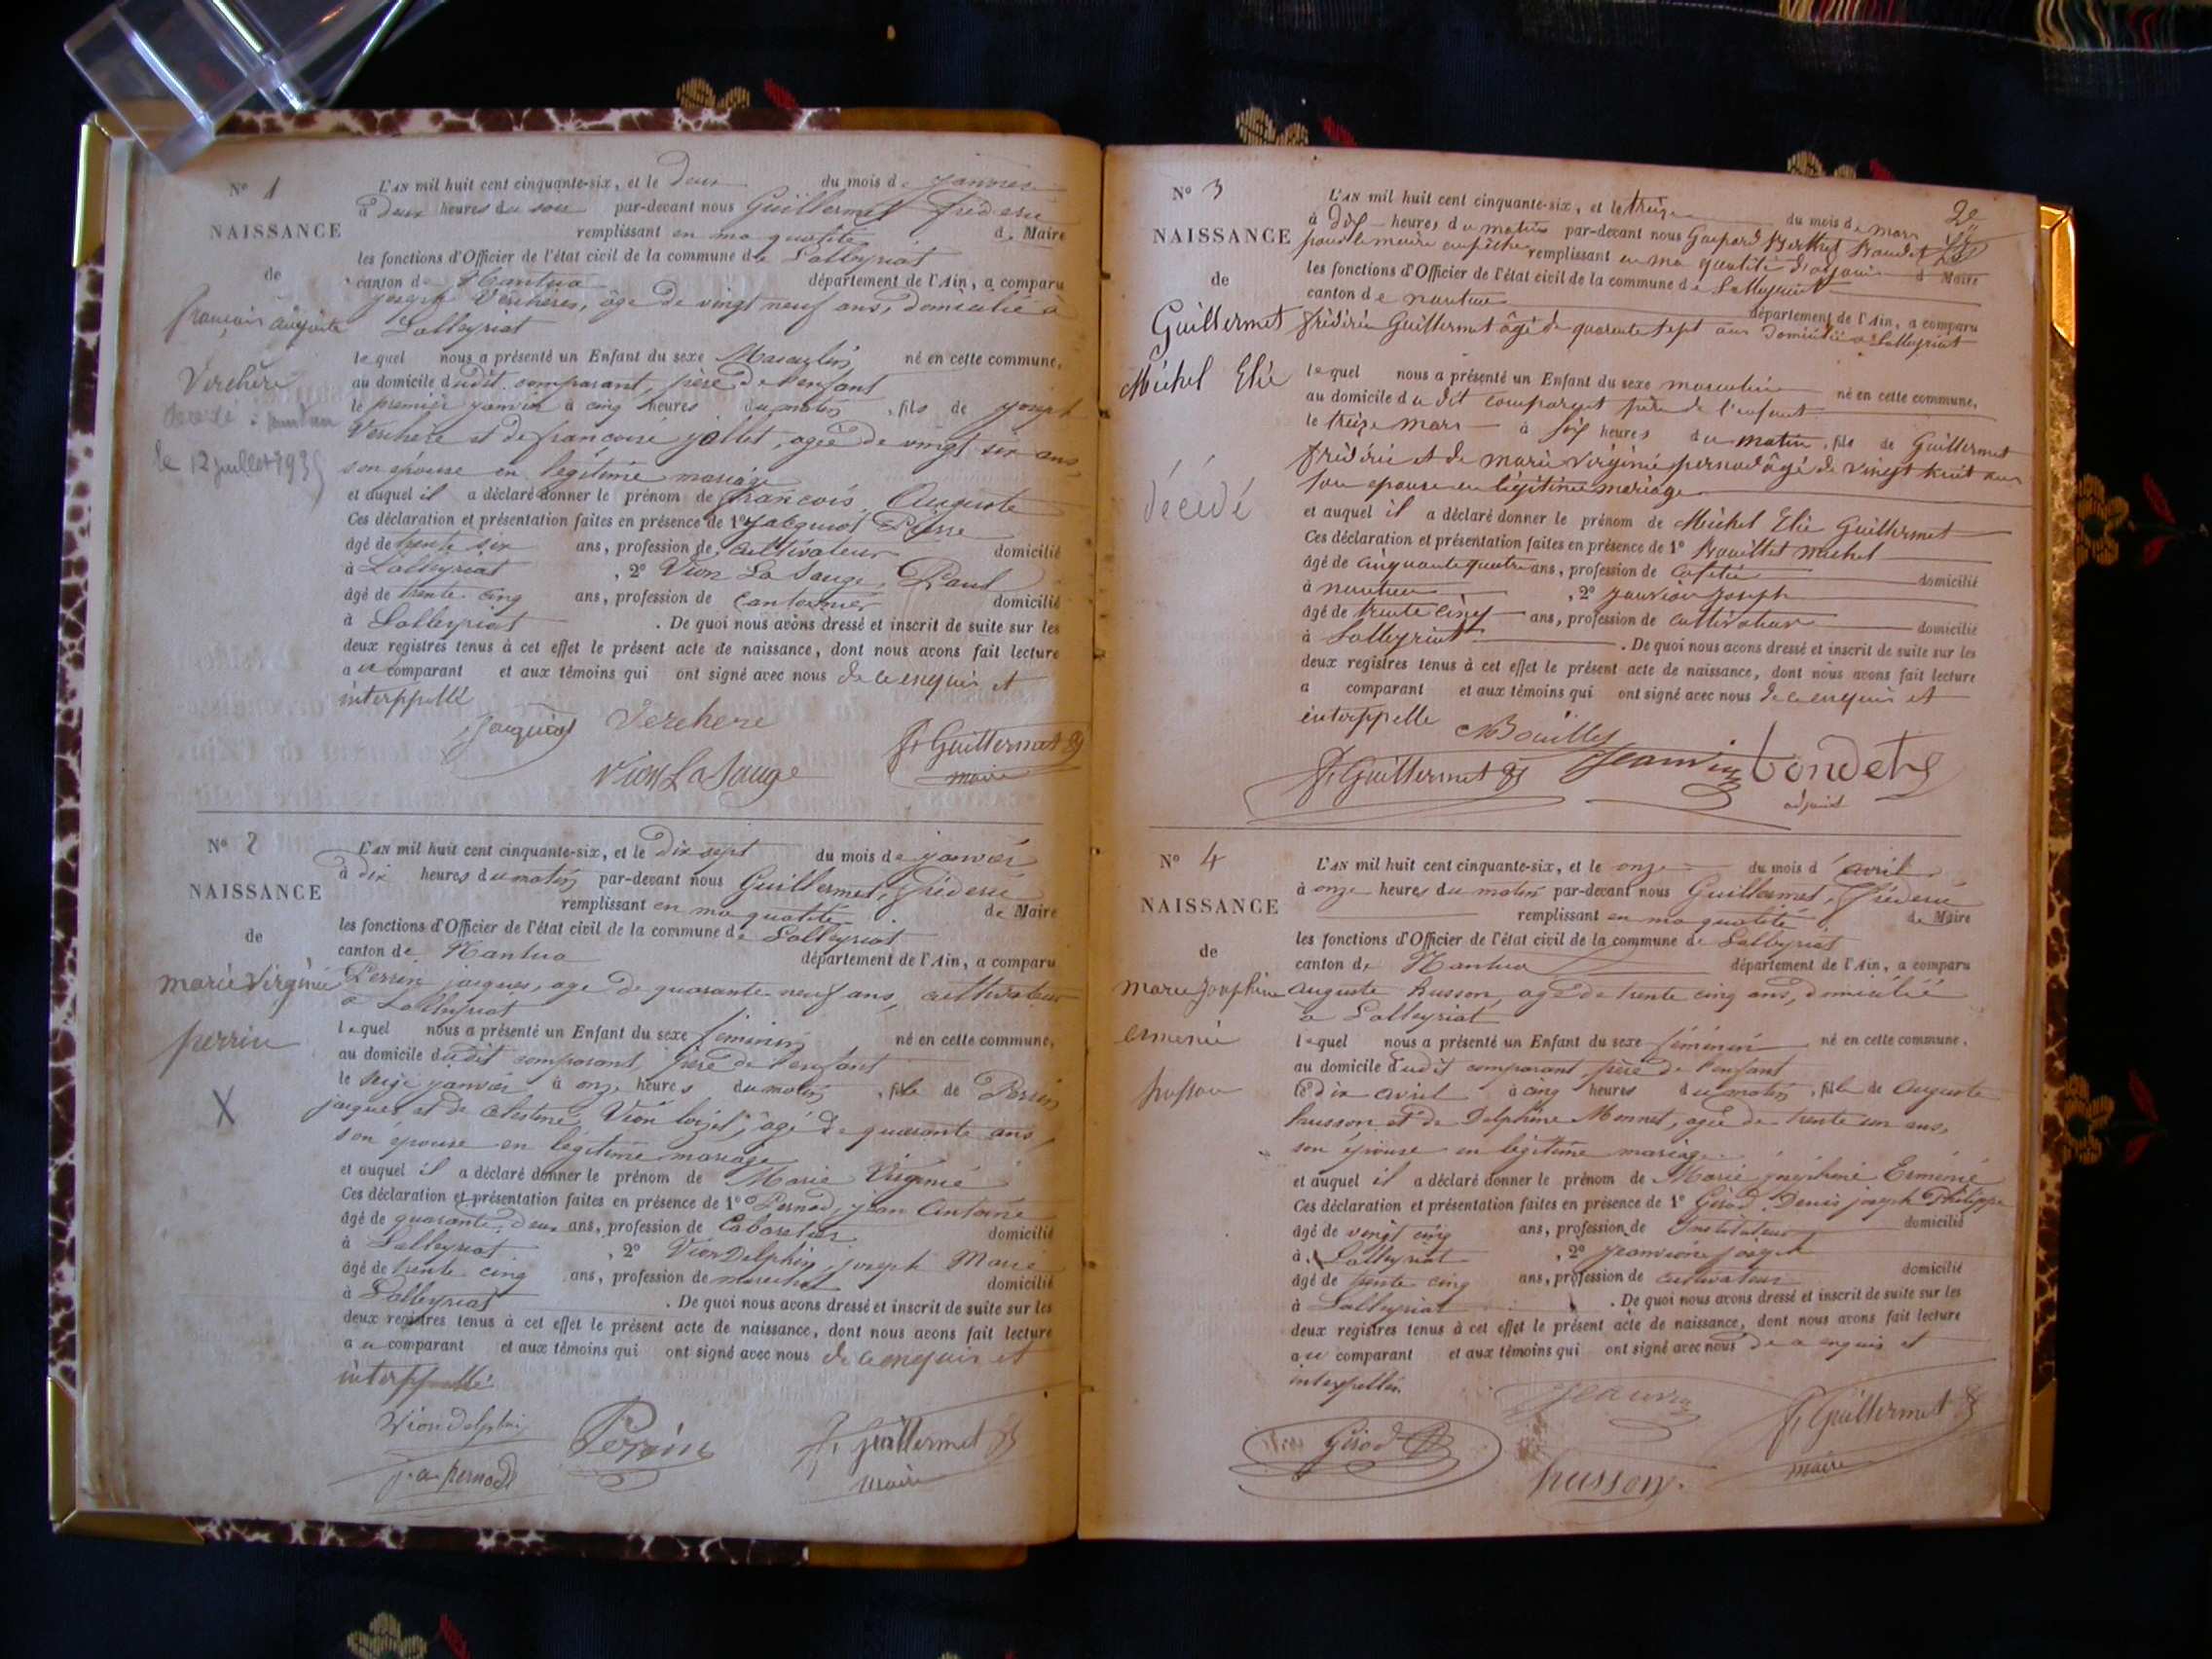 N° 1
NAISSANCE
de
françois auguste
Verchère
décédé à
le 12 juillet 193
L'AN mil huit cent cinquante-six, et le deux du mois de janvier
à deux heures du soir par-devant nous Guillermet frédéric
remplissant en ma qualité de Maire
les fonctions d'Officier de l'état civil de la commune de Lalleyriat
canton de Nantua département de l'Ain, a comparu
joseph Verchères, âgé de vingt neuf ans, domicilié à
Lalleyriat
lequel nous a présenté un Enfant du sexe Masculin né en cette commune,
au domicile dudit comparant, père de l'enfant
le premier janvier à cinq heures du matin, fils de joseph
Verchère et de françoise jollet, agée de vingt six ans,
son épouse en légitime mariage
et auquel il a déclaré donner le prénom de françois Auguste
Ces déclaration et présentation faites en présence de 1° jacquiot Pierre
âgé de trente six ans, profession de cultivateur domicilié
à Lalleyriat, 2° Vion La Sauge, Paul
âgé de trente cinq ans, profession de Cantonnier domicilié
à Lalleyriat. De quoi nous avons dressé et inscrit de suite sur les
deux registres tenus à cet effet le présent acte de naissance, dont nous avons fait lecture
au comparant et aux témoins qui ont signé avec nous de ce enquis et
interppellé
Verchere
Vion La Sauge
f. Guillermet
maire
N° 2
NAISSANCE
de
marie Virginie
perrin
X
L'AN mil huit cent cinquante-six, et le dix sept du mois de janvier
à dix heures du matin par-devant nous Guillermet, frédéric
remplissant en ma qualité de Maire
les fonctions d'Officier de l'état civil de la commune de Lalleyriat
canton de Nantua département de l'Ain, a comparu
Perrin jacques, age de quarante neuf ans, cultivateur
a Lalleyriat
lequel nous a présenté un Enfant du sexe feminin né en cette commune,
au domicile dudit comparant, père de l'enfant
le seize janvier à onze heures du matin, fille de Perrin
jacques et de Celestine Vion loizet, âgé de quarante ans,
son épouse en légitime mariage
et auquel il a déclaré donner le prénom de Marie Virginie
Ces déclaration et présentation faites en présence de 1° Pernod, jean Antoine
âgé de quarante deux ans, profession de Cabaretier domicilié
à Lalleyriat, 2° Vion Delphin, joseph Marie
âgé de trente cinq ans, profession de marechal domicilié
à Lalleyriat. De quoi nous avons dressé et inscrit de suite sur les
deux registres tenus à cet effet le présent acte de naissance, dont nous avons fait lecture
au comparant et aux témoins qui ont signé avec nous de ce enquis et
interppellé
Vion delphin
Perrin
f. Guillermet
j. a. pernod
maire
N° 3
NAISSANCE
de
Guillermet
Michel Elie
décédé
2e
L'AN mil huit cent cinquante-six, et le treize du mois de mars
à dix heures du matin par-devant nous Gaspard Berthet
pour le maire empêché remplissant en ma qualité d'adjoint d Maire
les fonctions d'Officier de l'état civil de la commune de Lalleyriat
canton de nantua département de l'Ain, a comparu
frédéric Guillermet âgé de quarante sept ans domicilié a Lalleyriat
lequel nous a présenté un Enfant du sexe masculin né en cette commune,
au domicile du dit comparant père de l'enfant
le treize mars à six heures du matin, fils de Guillermet
frédéric et de marie virginie pernod âgé de vingt huit ans
son epouse en légitime mariage
et auquel il a déclaré donner le prénom de Michel Elie Guillermet
Ces déclaration et présentation faites en présence de 1° Bouillet michel
âgé de cinquante quatre ans, profession de cafetier domicilié
à nantua, 2° joseph
âgé de trente cinq ans, profession de cultivateur domicilié
à Lalleyriat. De quoi nous avons dressé et inscrit de suite sur les
deux registres tenus à cet effet le présent acte de naissance, dont nous avons fait lecture
a comparant et aux témoins qui ont signé avec nous de ce enquis et
interppelle
f. Guillermet
adjoint
N° 4
NAISSANCE
de
marie josephine
erminie
husson
L'AN mil huit cent cinquante-six, et le onze du mois d'avril
à onze heures du matin par-devant nous Guillermet, frédéric
remplissant en ma qualité de Maire
les fonctions d'Officier de l'état civil de la commune de Lalleyriat
canton de Nantua département de l'Ain, a comparu
Auguste husson, agé de trente cinq ans, domicilié
à Lalleyriat
lequel nous a présenté un Enfant du sexe féminin né en cette commune,
au domicile dudit comparant, père de l'enfant
le dix avril à cinq heures du matin, fille de Auguste
husson et de Delphine Monnet, agée de trente un ans,
son épouse en légitime mariage
et auquel il a déclaré donner le prénom de Marie joséphine Erminie
Ces déclaration et présentation faites en présence de 1° Girod, Denis joseph Philippe
âgé de vingt cinq ans, profession de Instituteur domicilié
à Lalleyriat, 2° joseph
âgé de trente cinq ans, profession de cultivateur domicilié
à Lalleyriat. De quoi nous avons dressé et inscrit de suite sur les
deux registres tenus à cet effet le présent acte de naissance, dont nous avons fait lecture
au comparant et aux témoins qui ont signé avec nous de a enquis et
interpellés
f. Guillermet
Girod
husson
maire